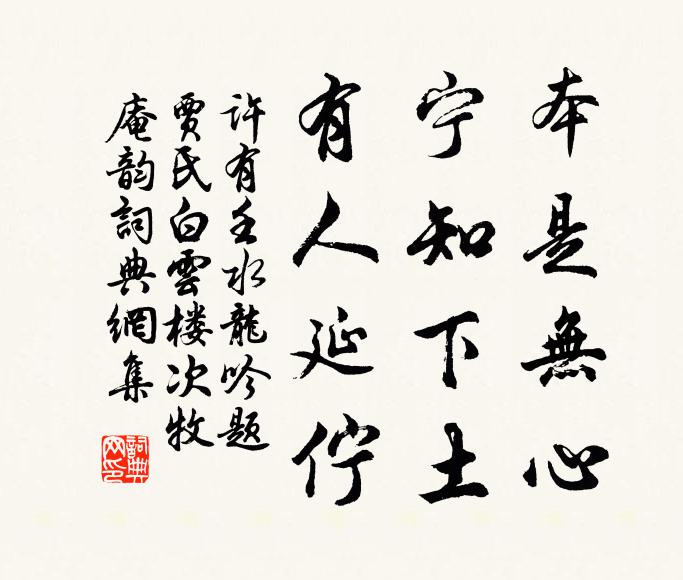 本是無心
宁知下土
有人延佇
许有壬水龍吟题
贾氏白雲楼次牧
庵韵詞典網集
詞典网印